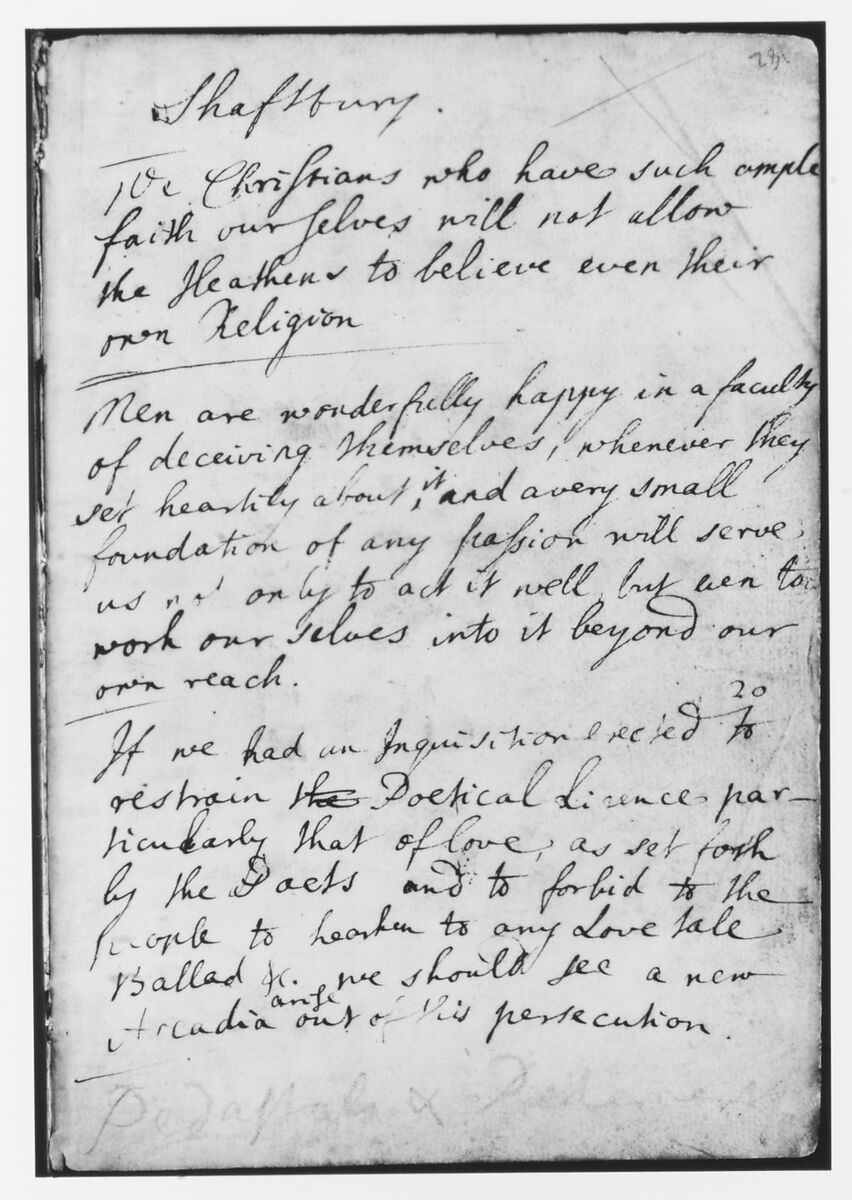 Shaftbury.
We Christians who have such ample
faith our selves will not allow
the Heathens to believe even their
own Religion
Men are wonderfully happy in a faculty
of deceiving themselves, whenever they
set heartily about it, and a very small
foundation of any passion will serve
us not only to act it well, but even to
work our selves into it beyond our
own reach.
20
If we had an Inquisition erected to
restrain the Poetical Licence par-
ticularly that of love, as set forth
by the Poets and to forbid to the
people to hearken to any Love tale
Ballad &c. we should see a new
Arcadia arise out of this persecution.